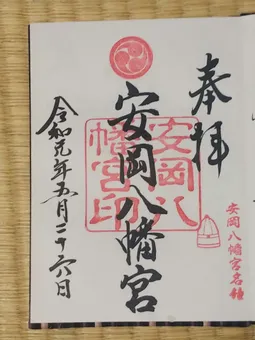 奉拝
安岡八幡宮
安岡八幡宮印
令和元年五月二十六日
安岡八幡宮名鐘